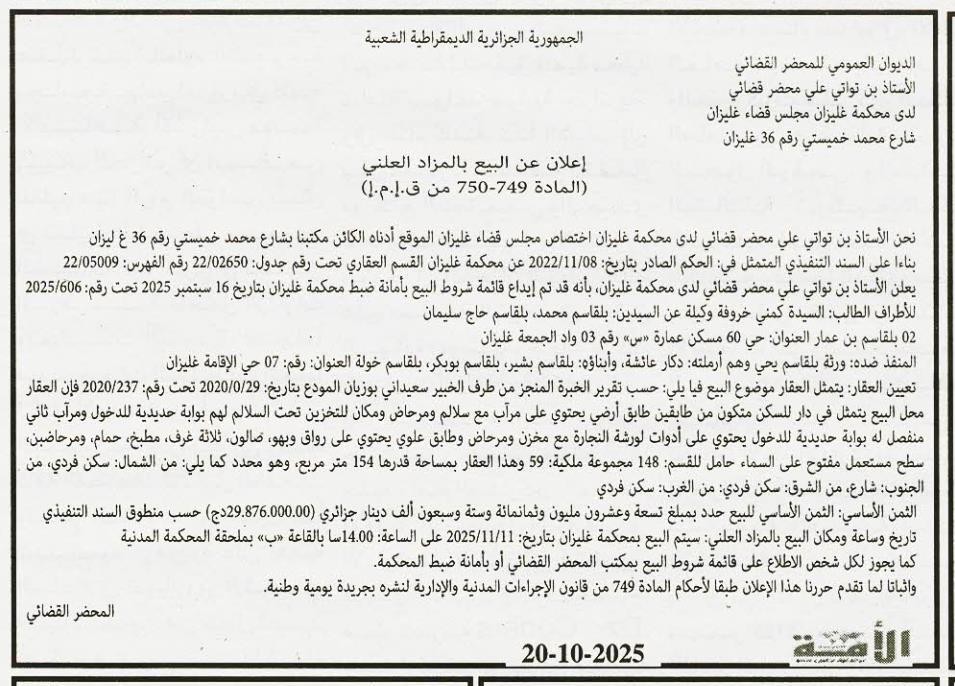 الجمهورية الجزائرية الديمقراطية الشعبية
الديوان العمومي للمحضر القضائي
الأستاذ بن تواتي علي محضر قضائي
لدى محكمة غليزان مجلس قضاء غليزان
شارع محمد خميستي رقم 36 غليزان
إعلان عن البيع بالمزاد العلني
(المادة 749-750 من ق.إ.م.إ)
نحن الأستاذ بن تواتي علي محضر قضائي لدى محكمة غليزان اختصاص مجلس قضاء غليزان الموقع أدناه الكائن مكتبنا بشارع محمد خميستي رقم 36 غ ليزان
بناءا على السند التنفيذي المتمثل في: الحكم الصادر بتاريخ: 2022/11/08 عن محكمة غليزان القسم العقاري تحت رقم جدول: 22/02650 رقم الفهرس: 22/05009
يعلن الأستاذ بن تواتي علي محضر قضائي لدى محكمة غليزان، بأنه قد تم إيداع قائمة شروط البيع بأمانة ضبط محكمة غليزان بتاريخ 16 سبتمبر 2025 تحت رقم: 2025/606
للأطراف الطالب: السيدة كمني خروفة وكيلة عن السيدين: بلقاسم محمد، بلقاسم حاج سليمان
02 بلقاسم بن عمار العنوان: حي 60 مسكن عمارة «س» رقم 03 واد الجمعة غليزان
المنفذ ضده: ورثة بلقاسم يحي وهم أرملته: دكار عائشة، وأبناؤه: بلقاسم بشير، بلقاسم بوبكر، بلقاسم خولة العنوان: رقم: 07 حي الإقامة غليزان
تعيين العقار: يتمثل العقار موضوع البيع فيا يلي: حسب تقرير الخبرة المنجز من طرف الخبير سعيداني بوزيان المودع بتاريخ: 2020/0/29 تحت رقم: 2020/237 فإن العقار
محل البيع يتمثل في دار للسكن متكون من طابقين طابق أرضي يحتوي على مرآب مع سلالم ومرحاض ومكان للتخزين تحت السلالم لهم بوابة حديدية للدخول ومرآب ثاني
منفصل له بوابة حديدية للدخول يحتوي على أدوات لورشة النجارة مع مخزن ومرحاض وطابق علوي يحتوي على رواق وبهو، صالون، ثلاثة غرف، مطبخ، حمام، ومرحاضين،
سطح مستعمل مفتوح على السماء حامل للقسم: 148 مجموعة ملكية: 59 وهذا العقار بمساحة قدرها 154 متر مربع، وهو محدد كما يلي: من الشمال: سكن فردي، من
الجنوب: شارع، من الشرق: سكن فردي: من الغرب: سكن فردي
الثمن الأساسي: الثمن الأساسي للبيع حدد بمبلغ تسعة وعشرون مليون وثمانمائة وستة وسبعون ألف دينار جزائري (29.876.000.00دج) حسب منطوق السند التنفيذي
تاريخ وساعة ومكان البيع بالمزاد العلني: سيتم البيع بمحكمة غليزان بتاريخ: 2025/11/11 على الساعة: 14.00سا بالقاعة «ب» بملحقة المحكمة المدنية
كما يجوز لكل شخص الاطلاع على قائمة شروط البيع بمكتب المحضر القضائي أو بأمانة ضبط المحكمة.
واثباتا لما تقدم حررنا هذا الإعلان طبقا لأحكام المادة 749 من قانون الإجراءات المدنية والإدارية لنشره بجريدة يومية وطنية.
المحضر القضائي
الأمة
20-10-2025